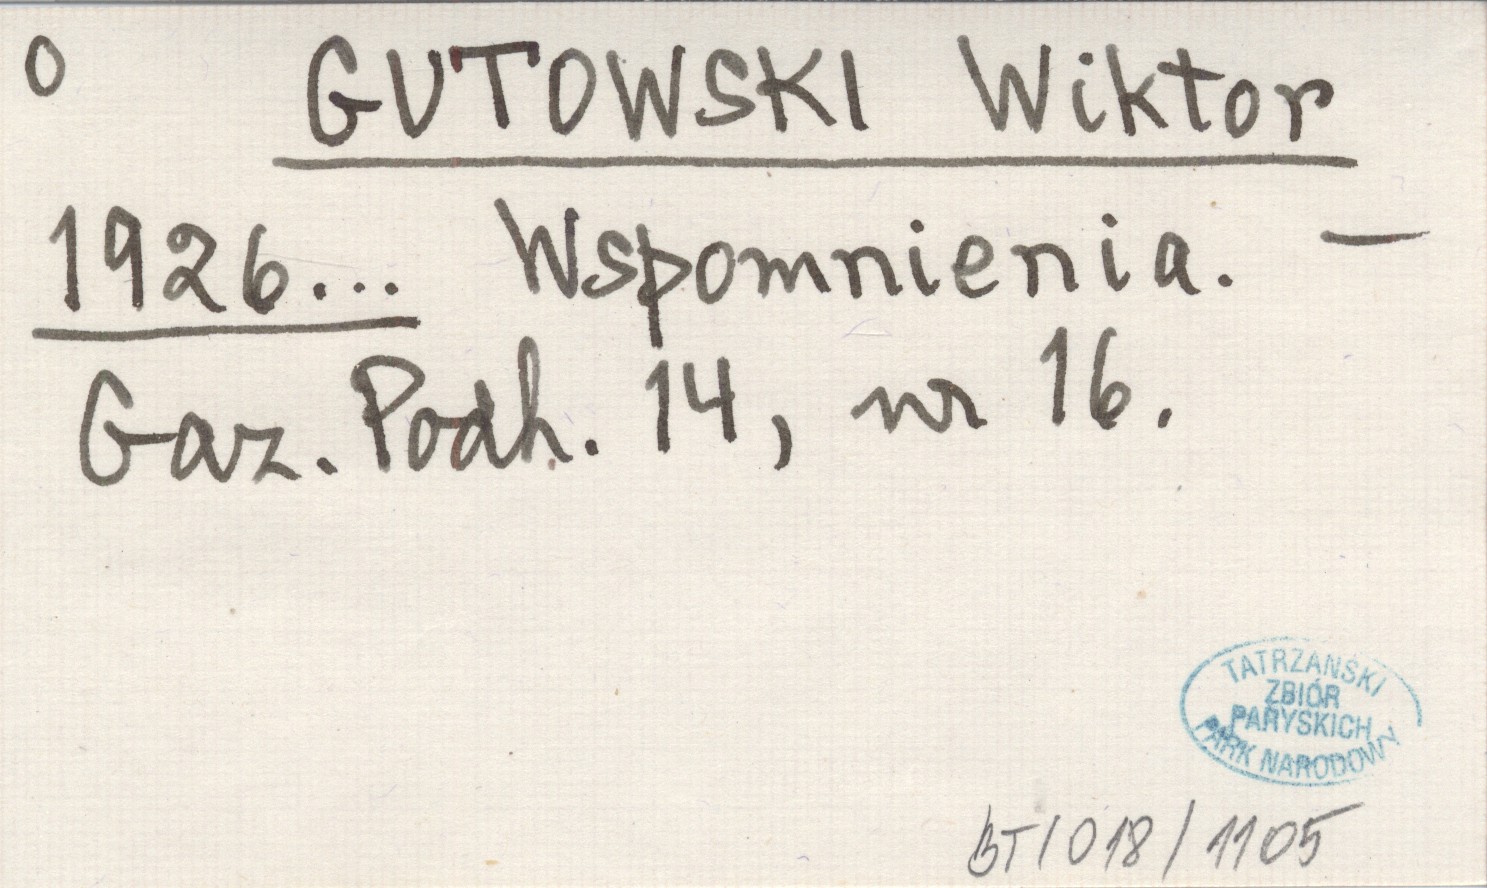 O GUTOWSKI Wiktor
1926... Wspomnienia. —
Gaz. Podh. 14, nr 16.
TATRZAŃSKI
ZBIÓR
PARYSKICH
PARK NARODOWY
BT/018/1105